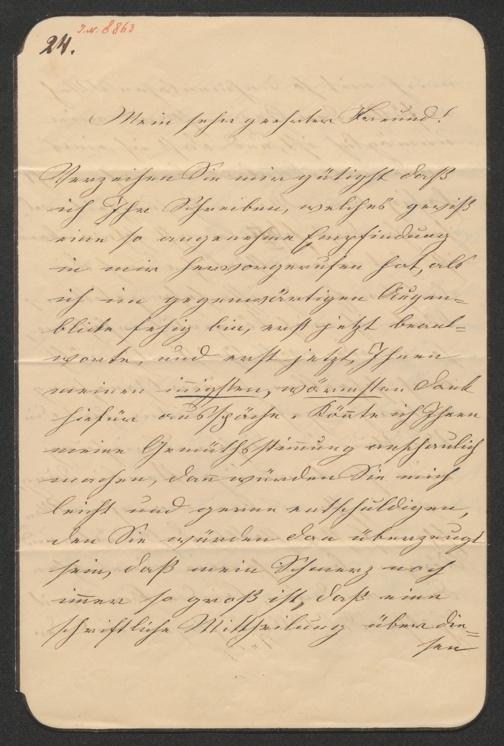 J.N. 8863
24.
Mein sehr geehrter Freund!
Verzeihen Sie mir gütigst daß
ich Ihr Schreiben, welches gewiß
eine so angenehme Empfindung
in mir hervorgerufen hat, als
ich im gegenwärtigen Augen=
blicke fehig bin, erst jetzt beant=
worte, und erst jetzt, Ihnen
meinen innigsten, wärmsten Dank
hiefür ausspreche. Könte ich Ihnen
meine Gemüthsstimung anschaulich
machen, dan würden Sie mich
leicht und gerne entschuldigen,
den Sie würden dan überzeugt
sein, daß mein Schmerz noch
imer so groß ist, daß eine
schriftliche Mittheilung über die=
sen